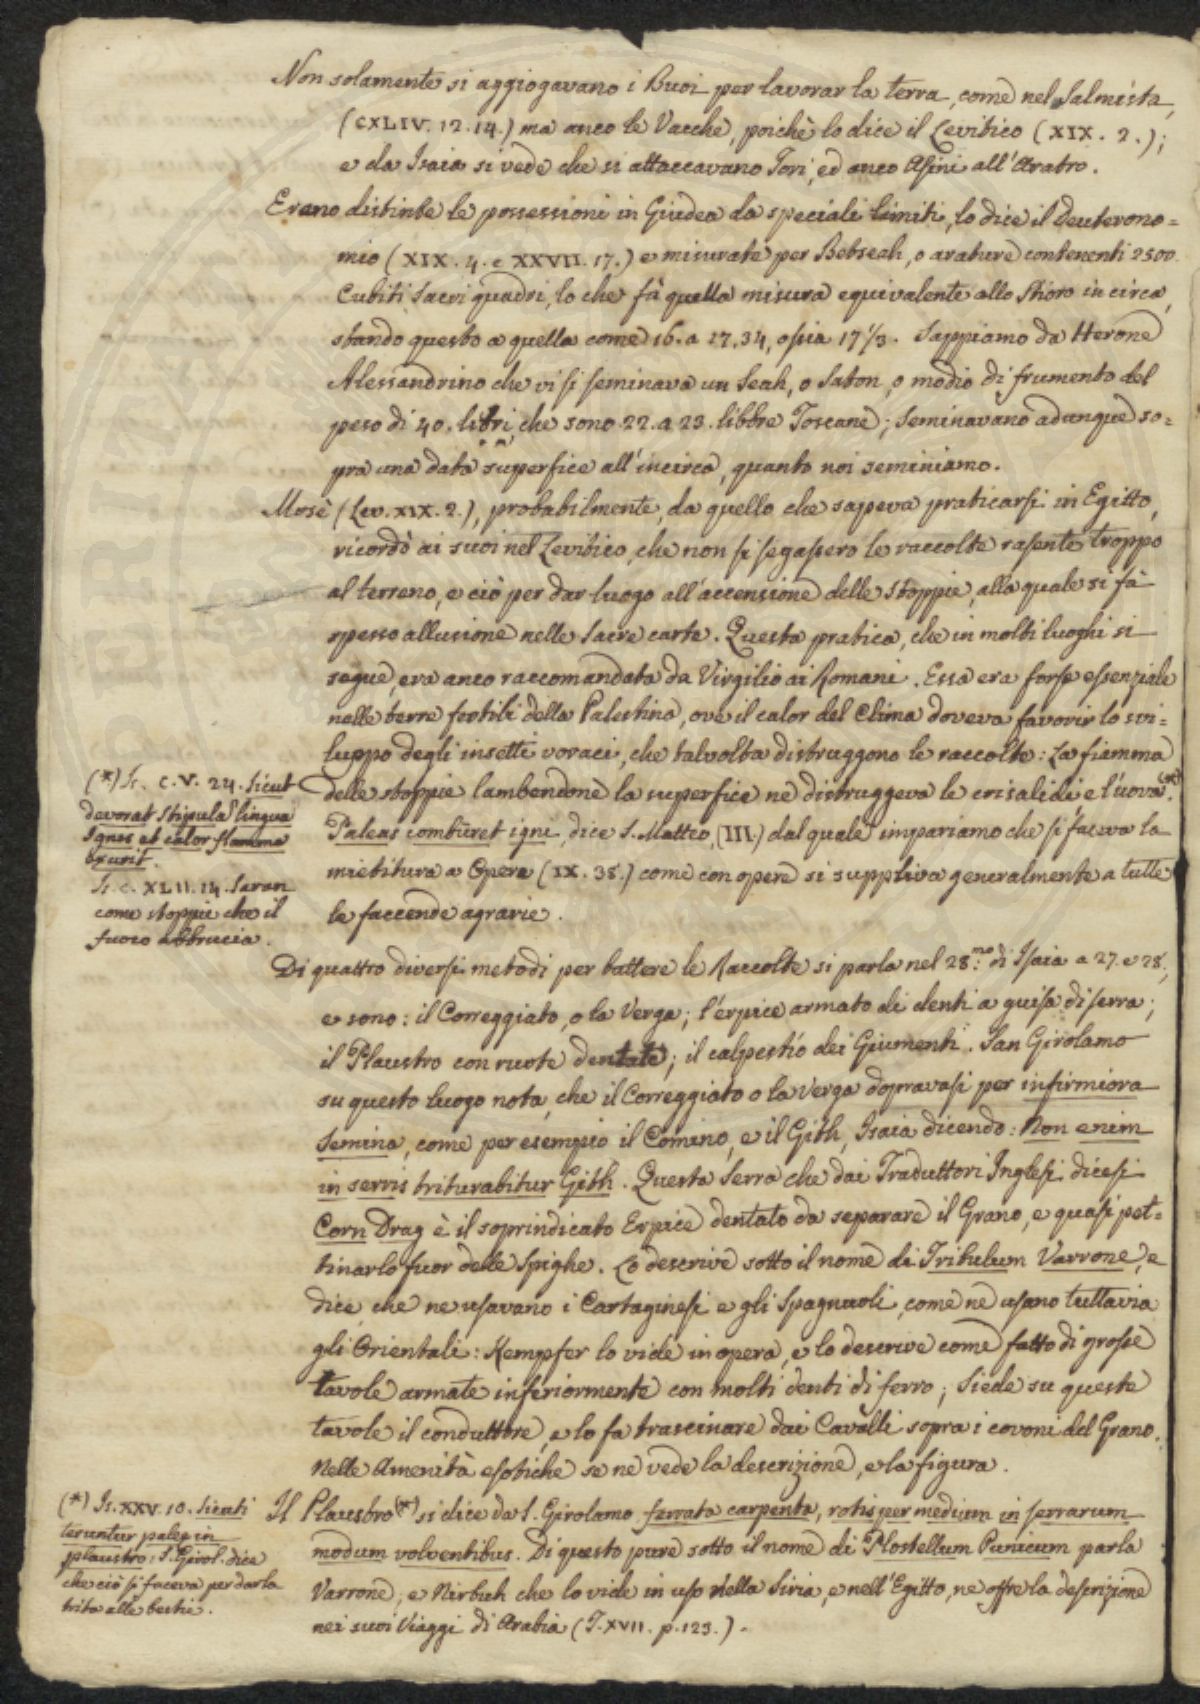 Non solamente si aggiogavano i Buoi per lavorar la terra, come nel Salmista,
(CXLIV. 12. 14.) ma anco le Vacche, poichè lo dice il Levitico (XIX. 2.);
e da Isaia si vede che si attaccavano Tori, ed anco Asini all'Aratro.
Erano distinte le possessioni in Giudea da speciali limiti, lo dice il Deuterono=
mio (XIX. 4. e XXVII. 17.) e misurate per Betseah, o arature contenenti 2500.
Cubiti sacri quadri, lo che fà quella misura equivalente allo Stioro in circa,
stando questo a quella come 16. a 17,34, ossia 17 1/3. Sappiamo da Herone
Alessandrino che vi si seminava un Seah, o Saton, o modio di frumento del
peso di 40. litri, che sono 22. a 23. libbre Toscane; seminavano adunque so=
pra una data superfice all'incirca, quanto noi seminiamo.
Mosè (Lev. XIX. 2.), probabilmente, da quello che sapeva praticarsi in Egitto,
ricordò ai suoi nel Levitico, che non si segassero le raccolte rasente troppo
al terreno, e ciò per dar luogo all'accensione delle stoppie, alla quale si fà
spesso allusione nelle Sacre carte. Questa pratica, che in molti luoghi si
segue, era anco raccomandata da Virgilio ai Romani. Essa era forse essenziale
nelle terre fertili della Palestina, ove il calor del Clima doveva favorir lo svi=
luppo degli insetti voraci, che talvolta distruggono le raccolte: La fiamma
delle stoppie lambendone la superfice ne distruggeva le crisalidi e l'uova (*).
Paleas combūret igni, dice S. Matteo, (III.) dal quale impariamo che si faceva la
mietitura a Opera (IX. 38.) come con opere si suppliva generalmente a tutte
le faccende agrarie.
(*) Is. c. V. 24. Sicut
devorat stipula lingua
ignis et calor flamma
exurit.
Is. c. XLII. 14. Saran
come stoppie che il
fuoco abbrucia.
Di quattro diversi metodi per battere le Raccolte si parla nel 28.mo di Isaia a 27. e 28.,
e sono: il Correggiato, o la Verga; l'erpice armato di denti a guisa di serra;
il Plaustro con ruote dentate; il calpestío dei Giumenti. San Girolamo
su questo luogo nota, che il Correggiato o la Verga dopravasi per infirmiora
Semina, come per esempio il Comino, e il Gith, Isaia dicendo: Non enim
in serris triturabitur Gith. Questa Serra che dai Traduttori Inglesi dicesi
Corn Drag è il soprindicato Erpice dentato da separare il Grano, e quasi pet=
tinarlo fuor delle Spighe. Lo descrive sotto il nome di Tribulum Varrone, e
dice, che ne usavano i Cartaginesi e gli Spagnuoli, come ne usano tuttavia
gli Orientali: Kempfer lo vide in opera, e lo descrive come fatto di grosse
tavole armate inferiormente con molti denti di ferro; Siede su queste
tavole il conduttore, e lo fa trascinare dai Cavalli sopra i covoni del Grano.
Nelle Amenità esotiche se ne vede la descrizione, e la figura.
Il Plaustro (*) si dice da S. Girolamo ferrata carpenta, rotis per medium in serrarum
modum volventibus. Di questo pure sotto il nome di Plostellum Punicum parla
Varrone, e Nirbuh che lo vide in uso nella Siria, e nell'Egitto, ne offre la descrizione
nei suoi Viaggi di Arabia (T. XVII. p. 123.).
(*) Is. XXV. 10. Sicuti
teruntur paleę in
plaustro: S. Girol. dice
che ciò si faceva per darla
trita alle bestie.